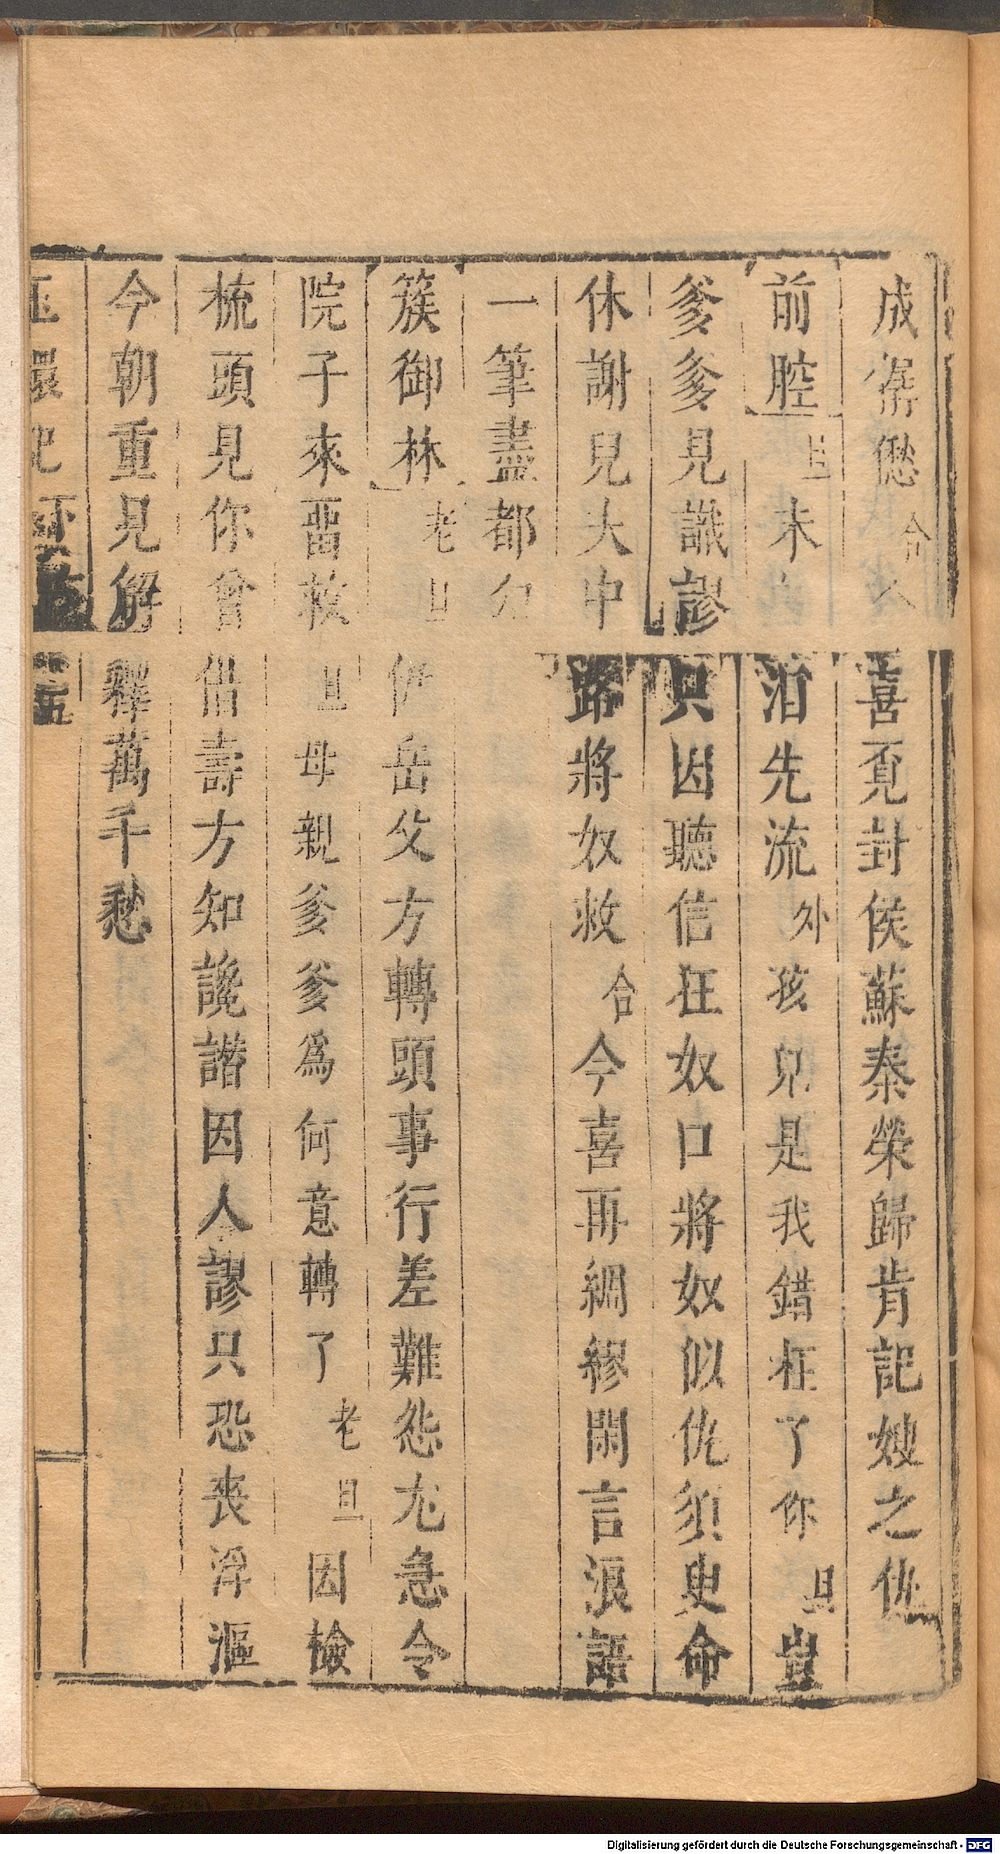 成僝僽合人喜覔封侯蘇秦榮歸肯記嫂之仇
前腔旦未泪先流外孩兒是我錯枉了你旦豈
爹爹見識謬只因聽信狂奴口將奴似仇須臾命
休謝兒夫中歸將奴救合今喜再綢繆閑言浪語
一筆盡都勾
簇御林老旦伊岳父方轉頭事行差難怨尤急令
院子來畱救旦母親爹爹爲何意轉了老旦因檢
梳頭見你曾借壽方知讒譖因人謬只恐喪浮漚
今朝重見解釋萬千愁
玉環記 下 五
Digitalisierung gefördert durch die Deutsche Forschungsgemeinschaft - DFG